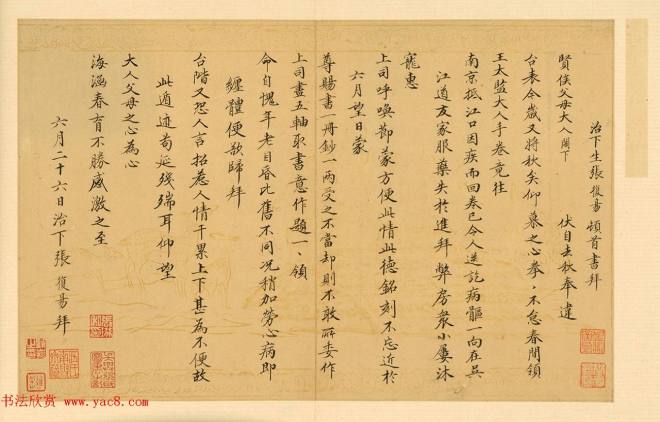 治下生張復昜頓首書拜
賢侯父母大人閣下
伏自去秋奉違
台表今歲又將秋矣仰慕之心拳〻不怠春間領
王太監大人手卷竟往
南京抵江口因疾而回卷已令人送訖病軀一向在吳
江道友家服藥失於進拜弊房衆小屢沐
寵惠
上司呼喚節蒙方便此情此德銘刻不忘近於
六月望日蒙
尊賜書一冊鈔一兩受之不當却則不敢所委作
上司畫五軸取書意作題一一領
命自愧年老目昏比舊不同況稍加勞心病即
纏體便欲歸拜
台階又恐人言招惹人情干累上下甚為不便故
此遁迹苟延殘喘耳仰望
大人父母之心為心
海涵春育不勝感激之至
六月二十六日治下張復昜拜
书法欣赏 www.yac8.com